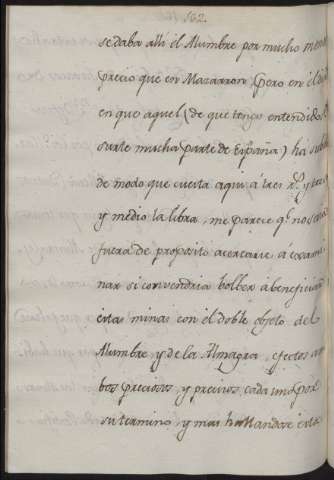 162.
se daba alli el Alumbre por mucho menos
precio que en Mazarron (pero en el dia
en que aquel (de que tengo entendido se
surte mucha parte de España) ha subido
de modo que cuesta aqui á tres rs. y
y medio la libra, me parece qe. no será
fuera de proposito acercarse á exami-
nar si convendria bolber á beneficiar
estas minas con el doble objeto del
Alumbre y de la Almagra, efectos am-
bos preciosos, y precisos cada uno por
su termino, y mas hallandose esta